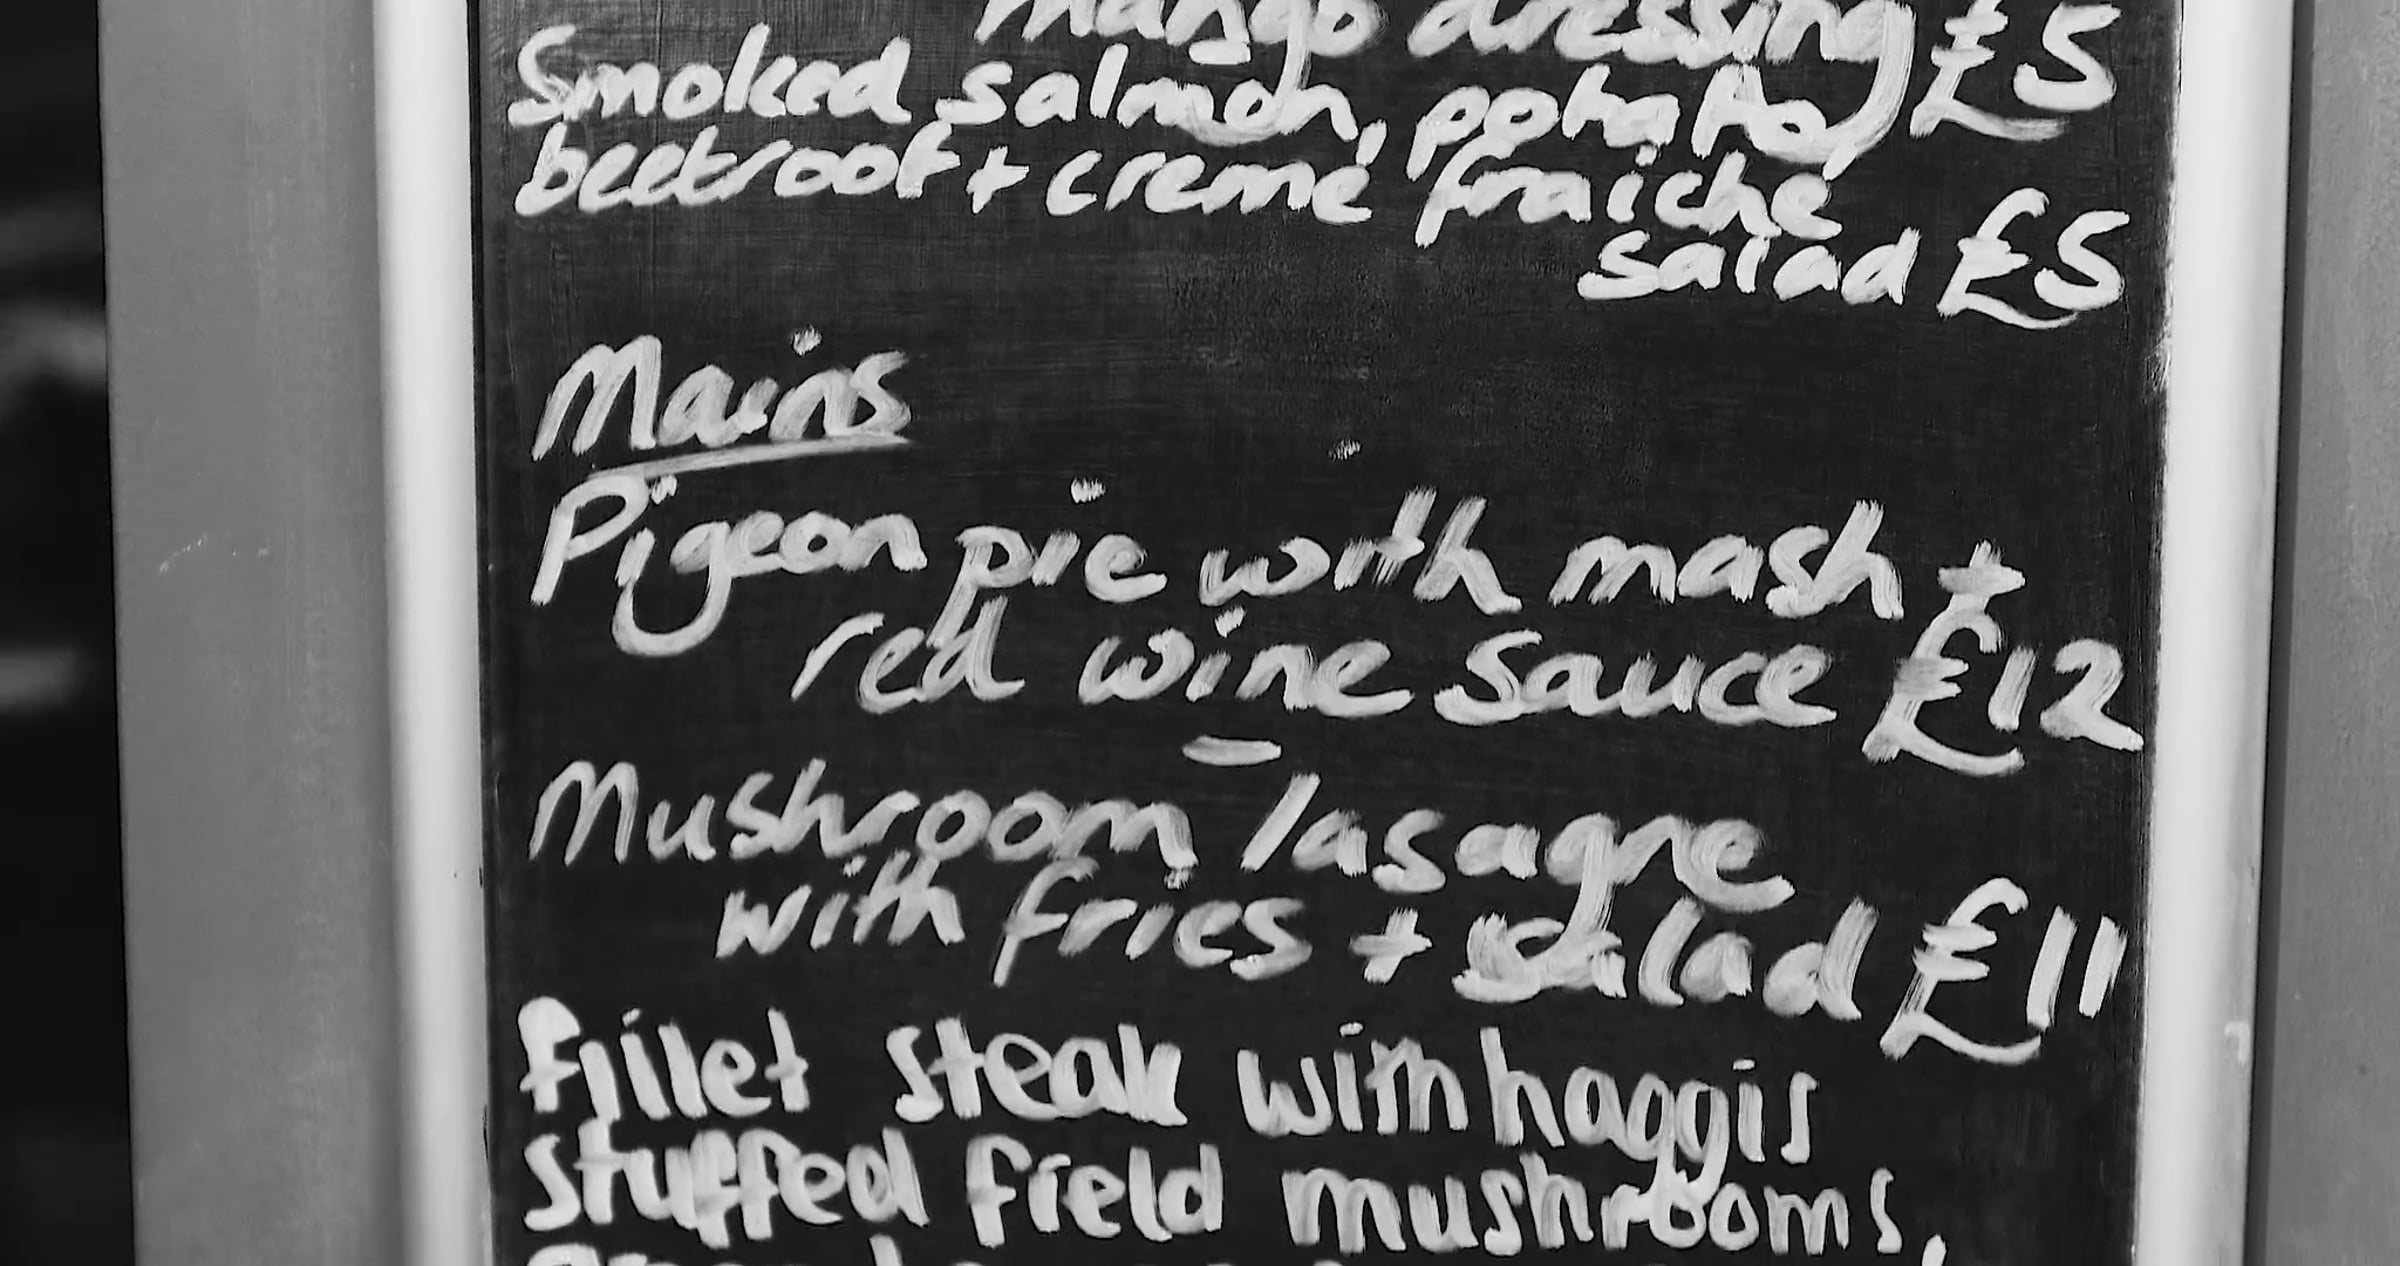 mango dressing £5
Smoked salmon, potato,
beetroot + creme fraiche
salad £5
Mains
Pigeon pie with mash +
red wine sauce £12
Mushroom lasagne
with fries + salad £11
fillet steak with haggis
stuffed field mushrooms,